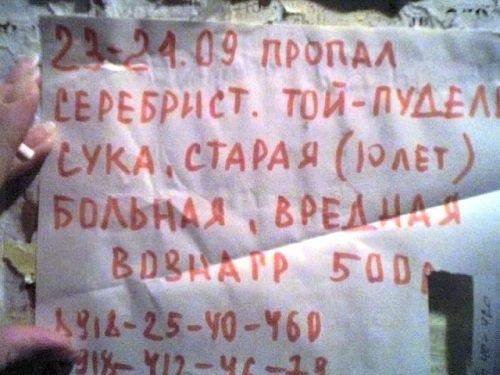 23-24.09 ПРОПАЛ
СЕРЕБРИСТ. ТОЙ-ПУДЕЛЬ
СУКА, СТАРАЯ (10 ЛЕТ)
БОЛЬНАЯ, ВРЕДНАЯ
ВОЗНАГР 500
8918-25-40-460